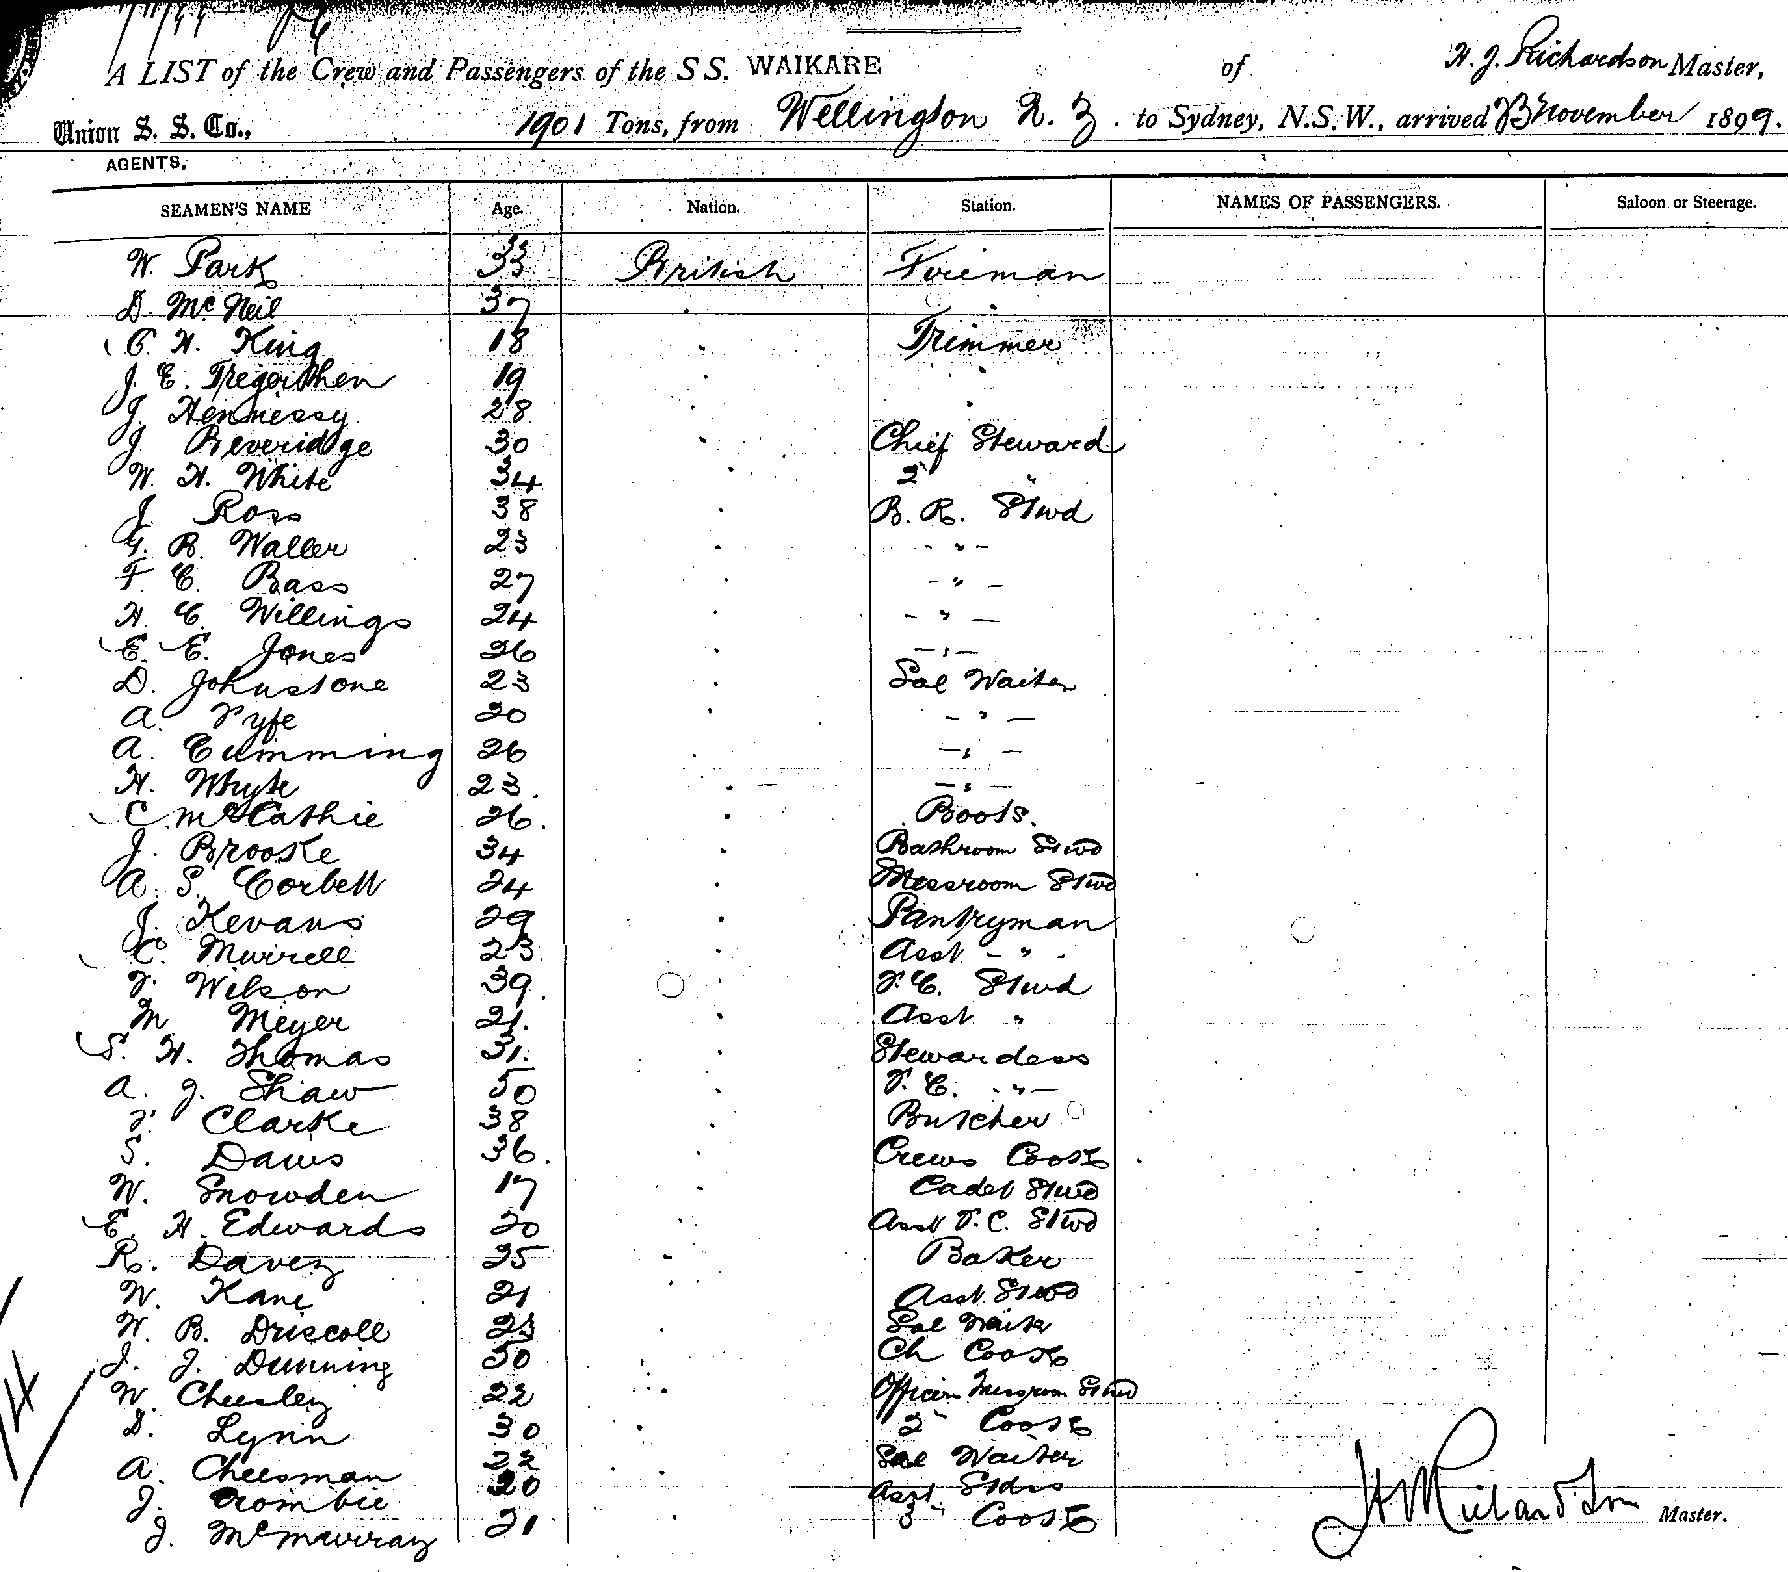 A LIST of the Crew and Passengers of the S S. WAIKARE of H. J. Richardson Master,
Union S. S. Co., 1901 Tons, from Wellington N. Z. to Sydney, N.S.W., arrived 13 November 1899.
AGENTS.
SEAMEN'S NAME Age. Nation. Station. NAMES OF PASSENGERS. Saloon or Steerage.
W. Park 33 British Fireman
D. McNeil 37 "
C. H. King 18 " Trimmer
J. E. Tregerthen 19 "
J. Hennessy 28 " "
J Beveridge 30 " Chief Steward
W. H. White 34 2 "
J Ross 38 " B. R. Stwd
G. B. Waller 23 " - " -
F C. Bass 27 " - " -
H. C. Willings 24 " - " -
E. E. Jones 26 " - " -
D. Johnstone 23 " Sal Waiter
A. Fyfe 20 " - " -
A. Cumming 26 " - " -
H. Whyte 23. " - " -
C. McCathie 26. " Boots.
J. Brooke 34 " Bathroom Stwd
A. S. Corbett 24 " Messroom Stwd
J. Kevans 29 " Pantryman
C. Murrell 23 " Asst - " -
F. Wilson 39. F. C. Stwd
M Meyer 21. " Asst "
S. H. Thomas 31. " Stewardess
A. J. Shaw 50 " F. C. - " -
F. Clarke 38 " Butcher
S. Daws 36. " Crews Cook
W. Snowden 17 " Cadet Stwd
E. H. Edwards 20 " Asst F. C. Stwd
R. Davey 25 " Baker
W. Kane 21 " Asst. Stwd
W. B. Driscoll 23 " Sal Waiter
J. J. Dunning 50 " Ch Cook
W. Cheesley 22 " Officers Messroom Stwd
D. Lynn 30 " 2" Cook
A. Cheesman 22 " Sal Waiter
J. Crombie 20 " Asst Stdss
J. McMurray 21 " 3" Cook
H J Richardson Master.